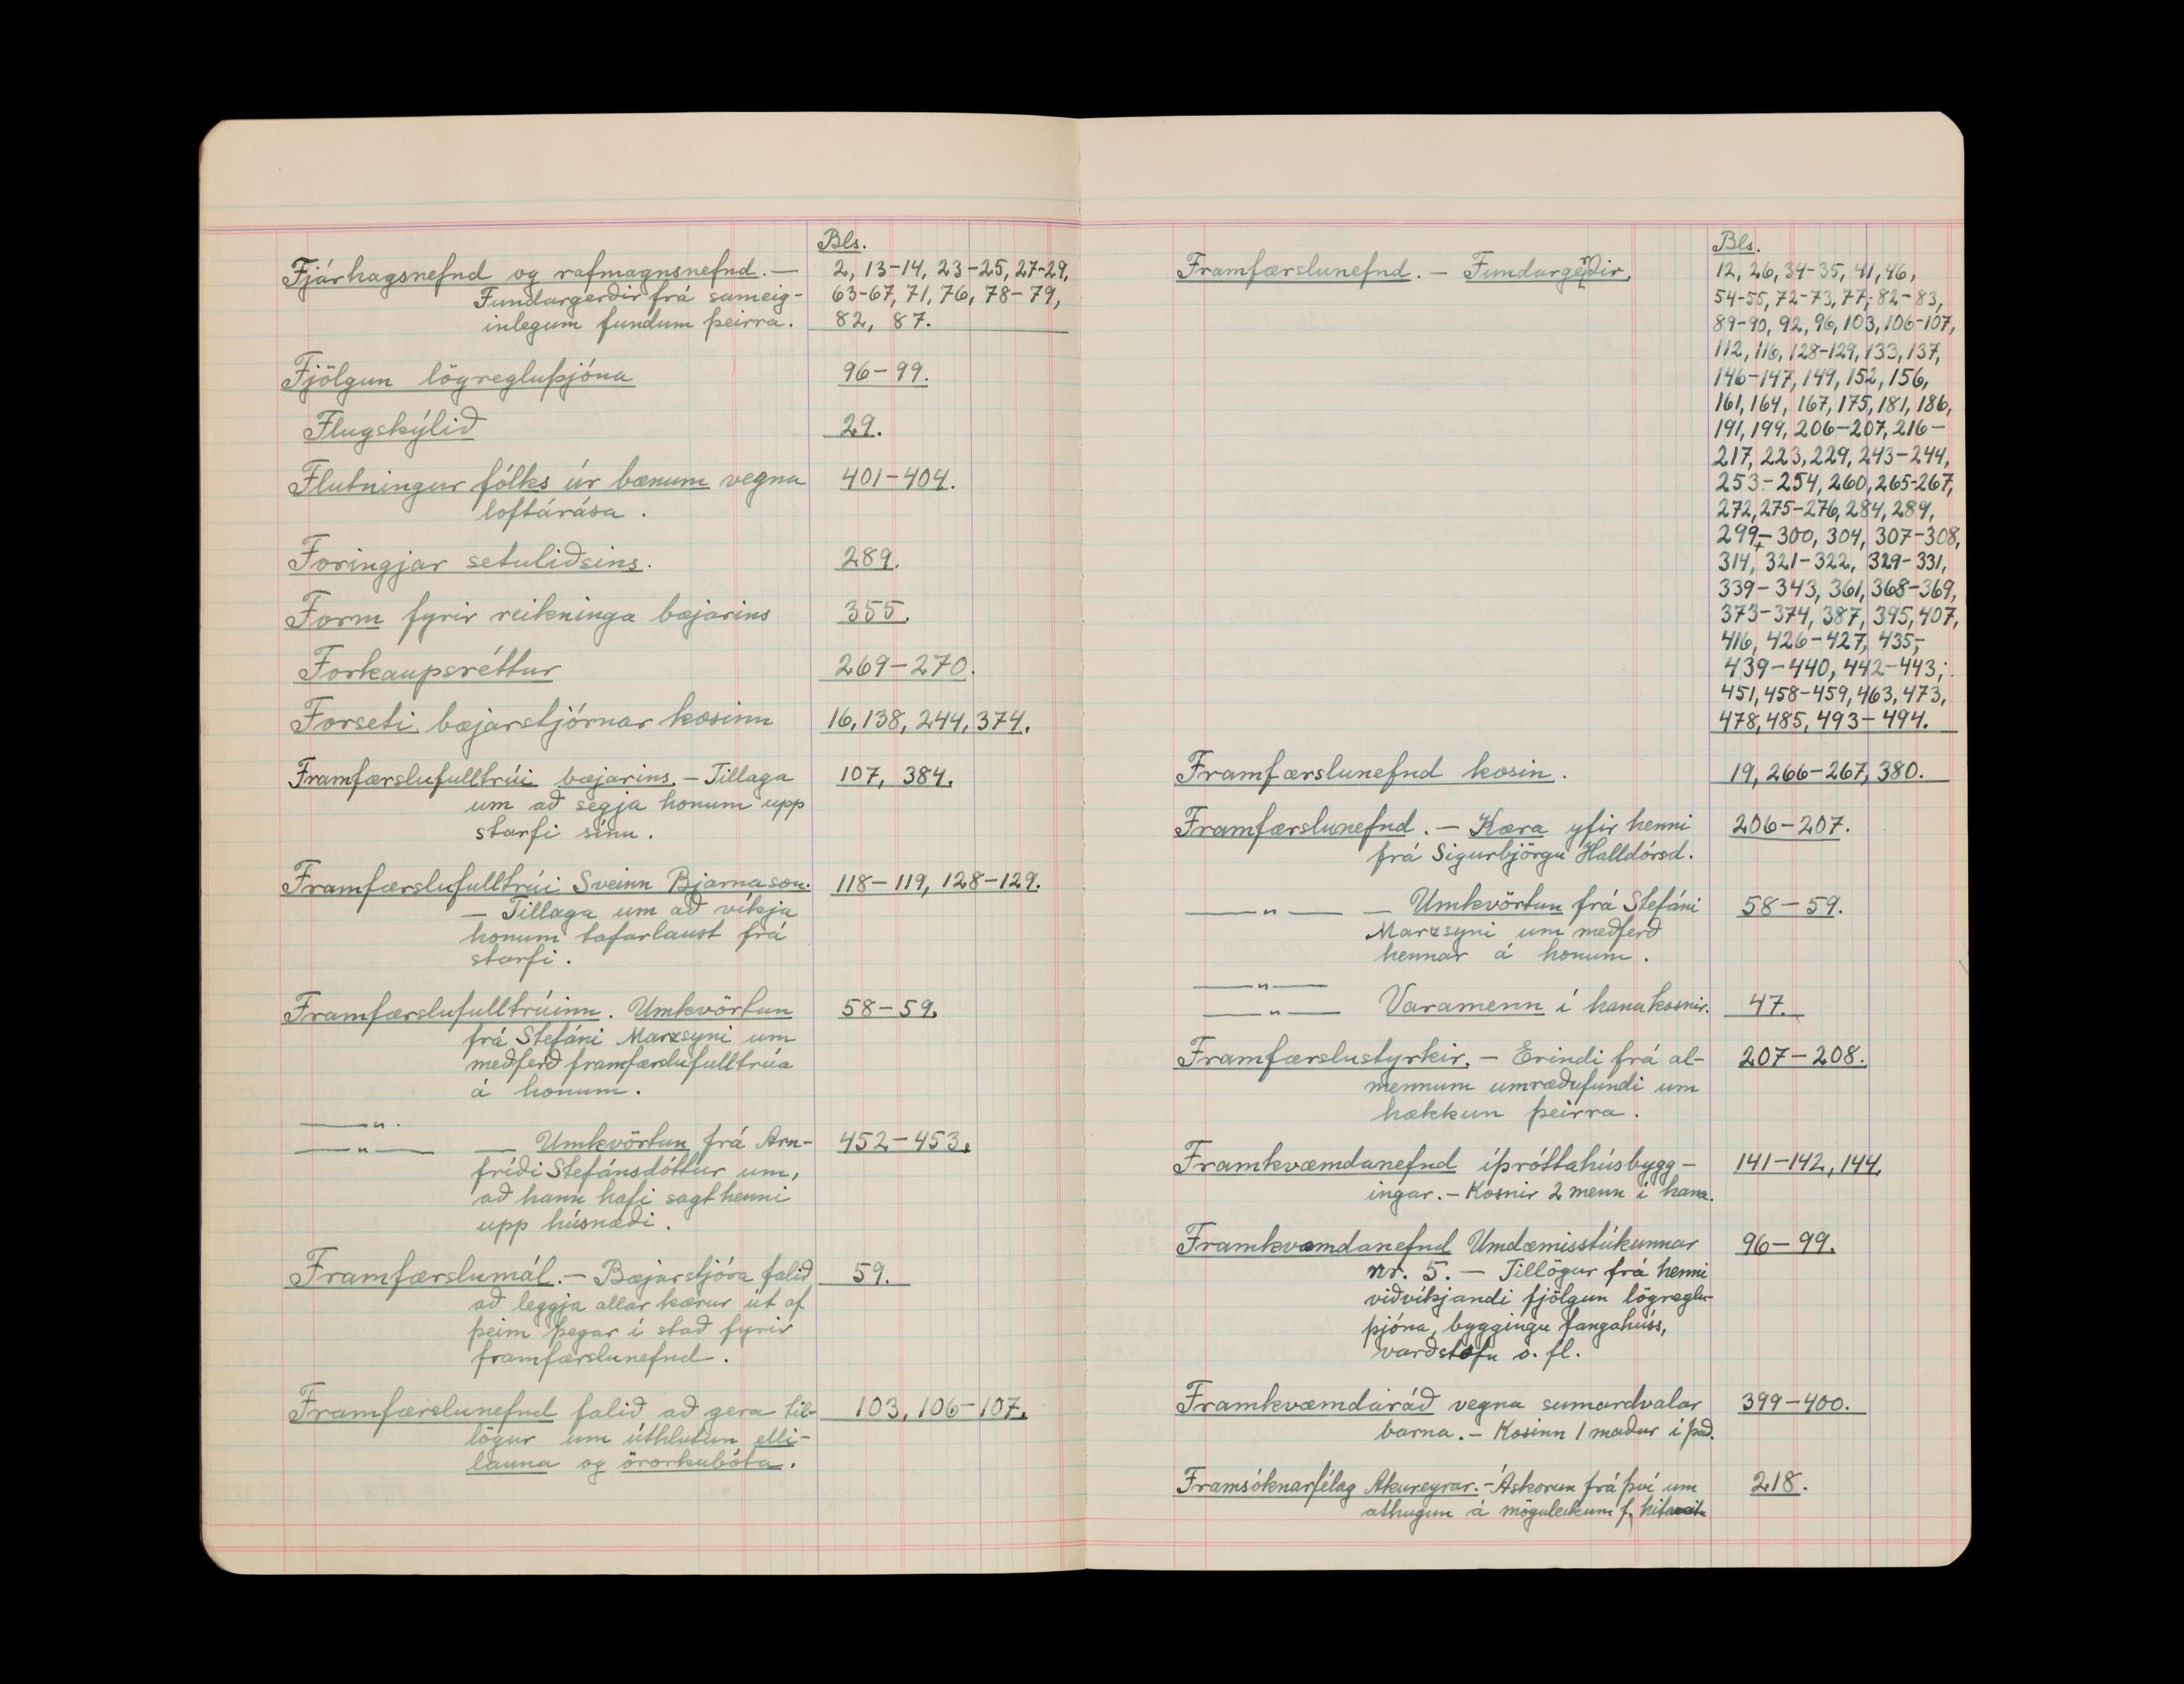 Bls.
Fjárhagsnefnd og rafmagnsnefnd. — 2, 13-14, 23-25, 27-29,
Fundargerðir frá sameig- 63-67, 71, 76, 78-79,
inlegum fundum þeirra. 82, 87.
Fjölgun lögregluþjóna 96-99.
Flugskýlið 29.
Flutningur fólks úr bænum vegna 401-404.
loftárása.
Foringjar setuliðsins. 289.
Form fyrir reikninga bæjarins 355.
Forkaupsréttur 269-270.
Forseti bæjarstjórnar kosinn 16, 138, 244, 374.
Framfærslufulltrúi bæjarins. — Tillaga 107, 384.
um að segja honum upp
starfi sínu.
Framfærslufulltrúi Sveinn Bjarnason. 118-119, 128-129.
— Tillaga um að víkja
honum tafarlaust frá
starfi.
Framfærslufulltrúinn. Umkvörtun 58-59.
frá Stefáni Marzsyni um
meðferð framfærslufulltrúa
á honum.
—〃.
—〃— — Umkvörtun frá Arn- 452-453.
fríði Stefánsdóttur um,
að hann hafi sagt henni
upp húsnæði.
Framfærslumál. — Bæjarstjóra falið 59.
að leggja allar kærur út af
þeim þegar í stað fyrir
framfærslunefnd.
Framfærslunefnd falið að gera til- 103, 106-107.
lögur um úthlutun elli-
launa og örorkubóta.
Bls.
Framfærslunefnd. — Fundargerðir. 12, 26, 34-35, 41, 46,
54-55, 72-73, 77, 82-83,
89-90, 92, 96, 103, 106-107,
112, 116, 128-129, 133, 137,
146-147, 149, 152, 156,
161, 164, 167, 175, 181, 186,
191, 199, 206-207, 216-
217, 223, 229, 243-244,
253-254, 260, 265-267,
272, 275-276, 284, 289,
299-300, 304, 307-308,
314, 321-322, 329-331,
339-343, 361, 368-369,
373-374, 387, 395, 407,
416, 426-427, 435,
439-440, 442-443;
451, 458-459, 463, 473,
478, 485, 493-494.
Framfærslunefnd kosin. 19, 266-267, 380.
Framfærslunefnd. — Kæra yfir henni 206-207.
frá Sigurbjörgu Halldórsd.
—〃— — Umkvörtun frá Stefáni 58-59.
Marzsyni um meðferð
hennar á honum.
—〃—
—〃— Varamenn í hana kosnir. 47.
Framfærslustyrkir. — Erindi frá al- 207-208.
mennum umræðufundi um
hækkun þeirra.
Framkvæmdanefnd íþróttahúsbygg- 141-142, 144.
ingar. — Kosnir 2 menn í hana.
Framkvæmdanefnd Umdæmisstúkunnar 96-99.
nr. 5. — Tillögur frá henni
viðvíkjandi fjölgun lögreglu-
þjóna, byggingu fangahúss,
varðstofu o. fl.
Framkvæmdaráð vegna sumardvalar 399-400.
barna. — Kosinn 1 maður í það.
Framsóknarfélag Akureyrar. — Áskorun frá því um 218.
athugun á möguleikum f. hitaveitu